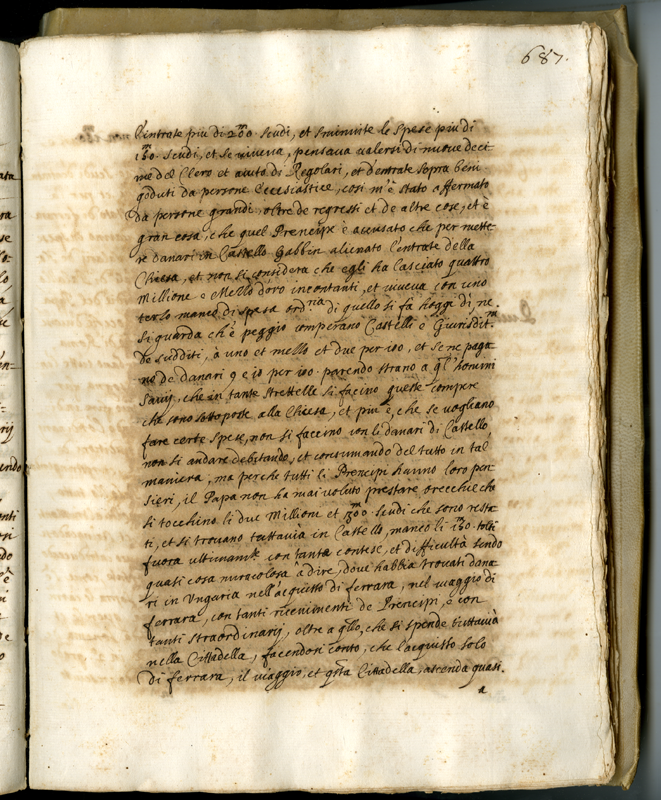 687.
l'entrate piu di 200 m scudi, et sminuite le spese piu di
150 m scudi, et se viveva, pensava valersi di nuove deci-
me del Clero et aiuto di Regolari, et d'entrate sopra beni
goduti da persone Ecclesiastice, cosi m'è stato affermato
da persone grandi, oltre de regressi et de altre cose, et è
gran cosa, che quel Prencipe è accusato che per mette-
re danari in Castello habbia alienato l'entrate della
Chiesa, et non si considera che egli ha lasciato quattro
Millione e Mezzo d'oro incontanti, et viveva con uno
terzo manco di spesa ord.ria di quello si fa hoggi dì, ne
si guarda ch'è peggio comperano Castelli e Giurisdit.m
de sudditi, à uno et mezzo et due per 100, et se ne paga-
no de danari 9 e 10 per 100. parendo strano a ql' homini
Savij, che in tante strettezze si facino queste compere
che sono sottoposte alla Chiesa, et piu è, che se vogliano
fare certe spese, non si faccino con li danari di Castello,
non si andare debitando, et consumando del tutto in tal
maniera, ma perche tutti li Prencipi hanno loro pen-
sieri, il Papa non ha mai voluto prestare orecchie che
si tocchino li due Millione et 300 m scudi che sono resta-
ti, et si trovano tuttavia in Castello, manco li 150 m tolti
fuora ultimam.te con tante contese, et difficultà sendo
quasi cosa miracolosa à dire, dove habbia trovati dana-
ri in Ungaria nell'acquisto di ferrara, nel viaggio di
ferrara, con tanti ricevimenti de Prencipi, e con
tanti straordinarij, oltre a qllo, che si spende tuttavia
nella Cittadella, facendosi conto, che l'acquisto solo
di ferrara, il viaggio, et qsta Cittadella, ascenda quasi.
a